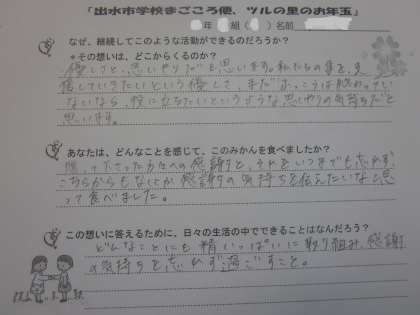 「出水市学校まごころ便、ツルの里のお年玉」
年 組( ) 名前
なぜ、継続してこのような活動ができるのだろうか?
*その想いは、どこからくるのか?
優しさと、思いやりだと思います。私たちの事を、支
援していきたいという優しさ、まだ
ないなら、役に立ちたいというような思いやりの気持ちだと
思います。
あなたは、どんなことを感じて、このみかんを食べましたか?
贈って下さった方々への感謝と、それをいつまでも忘れず、
こちらからもなにか感謝の気持ちを伝えたいなと思
って食べました。
この想いに答えるために、日々の生活の中でできることはなんだろう?
どんなことにも精いっぱいに取り組み、感謝
の気持ちを忘れず過ごすこと。